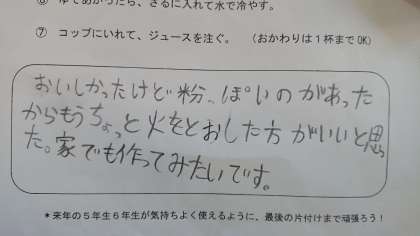 ⑥ ゆであがったら、ざるに入れて水で冷やす。
⑦ コップにいれて、ジュースを注ぐ。（おかわりは1杯までOK）
おいしかったけど粉っぽいのがあった
からもうちょっと火をとおした方がいいと思っ
た。家でも作ってみたいです。
＊来年の5年生6年生が気持ちよく使えるように、最後の片付けまで頑張ろう！